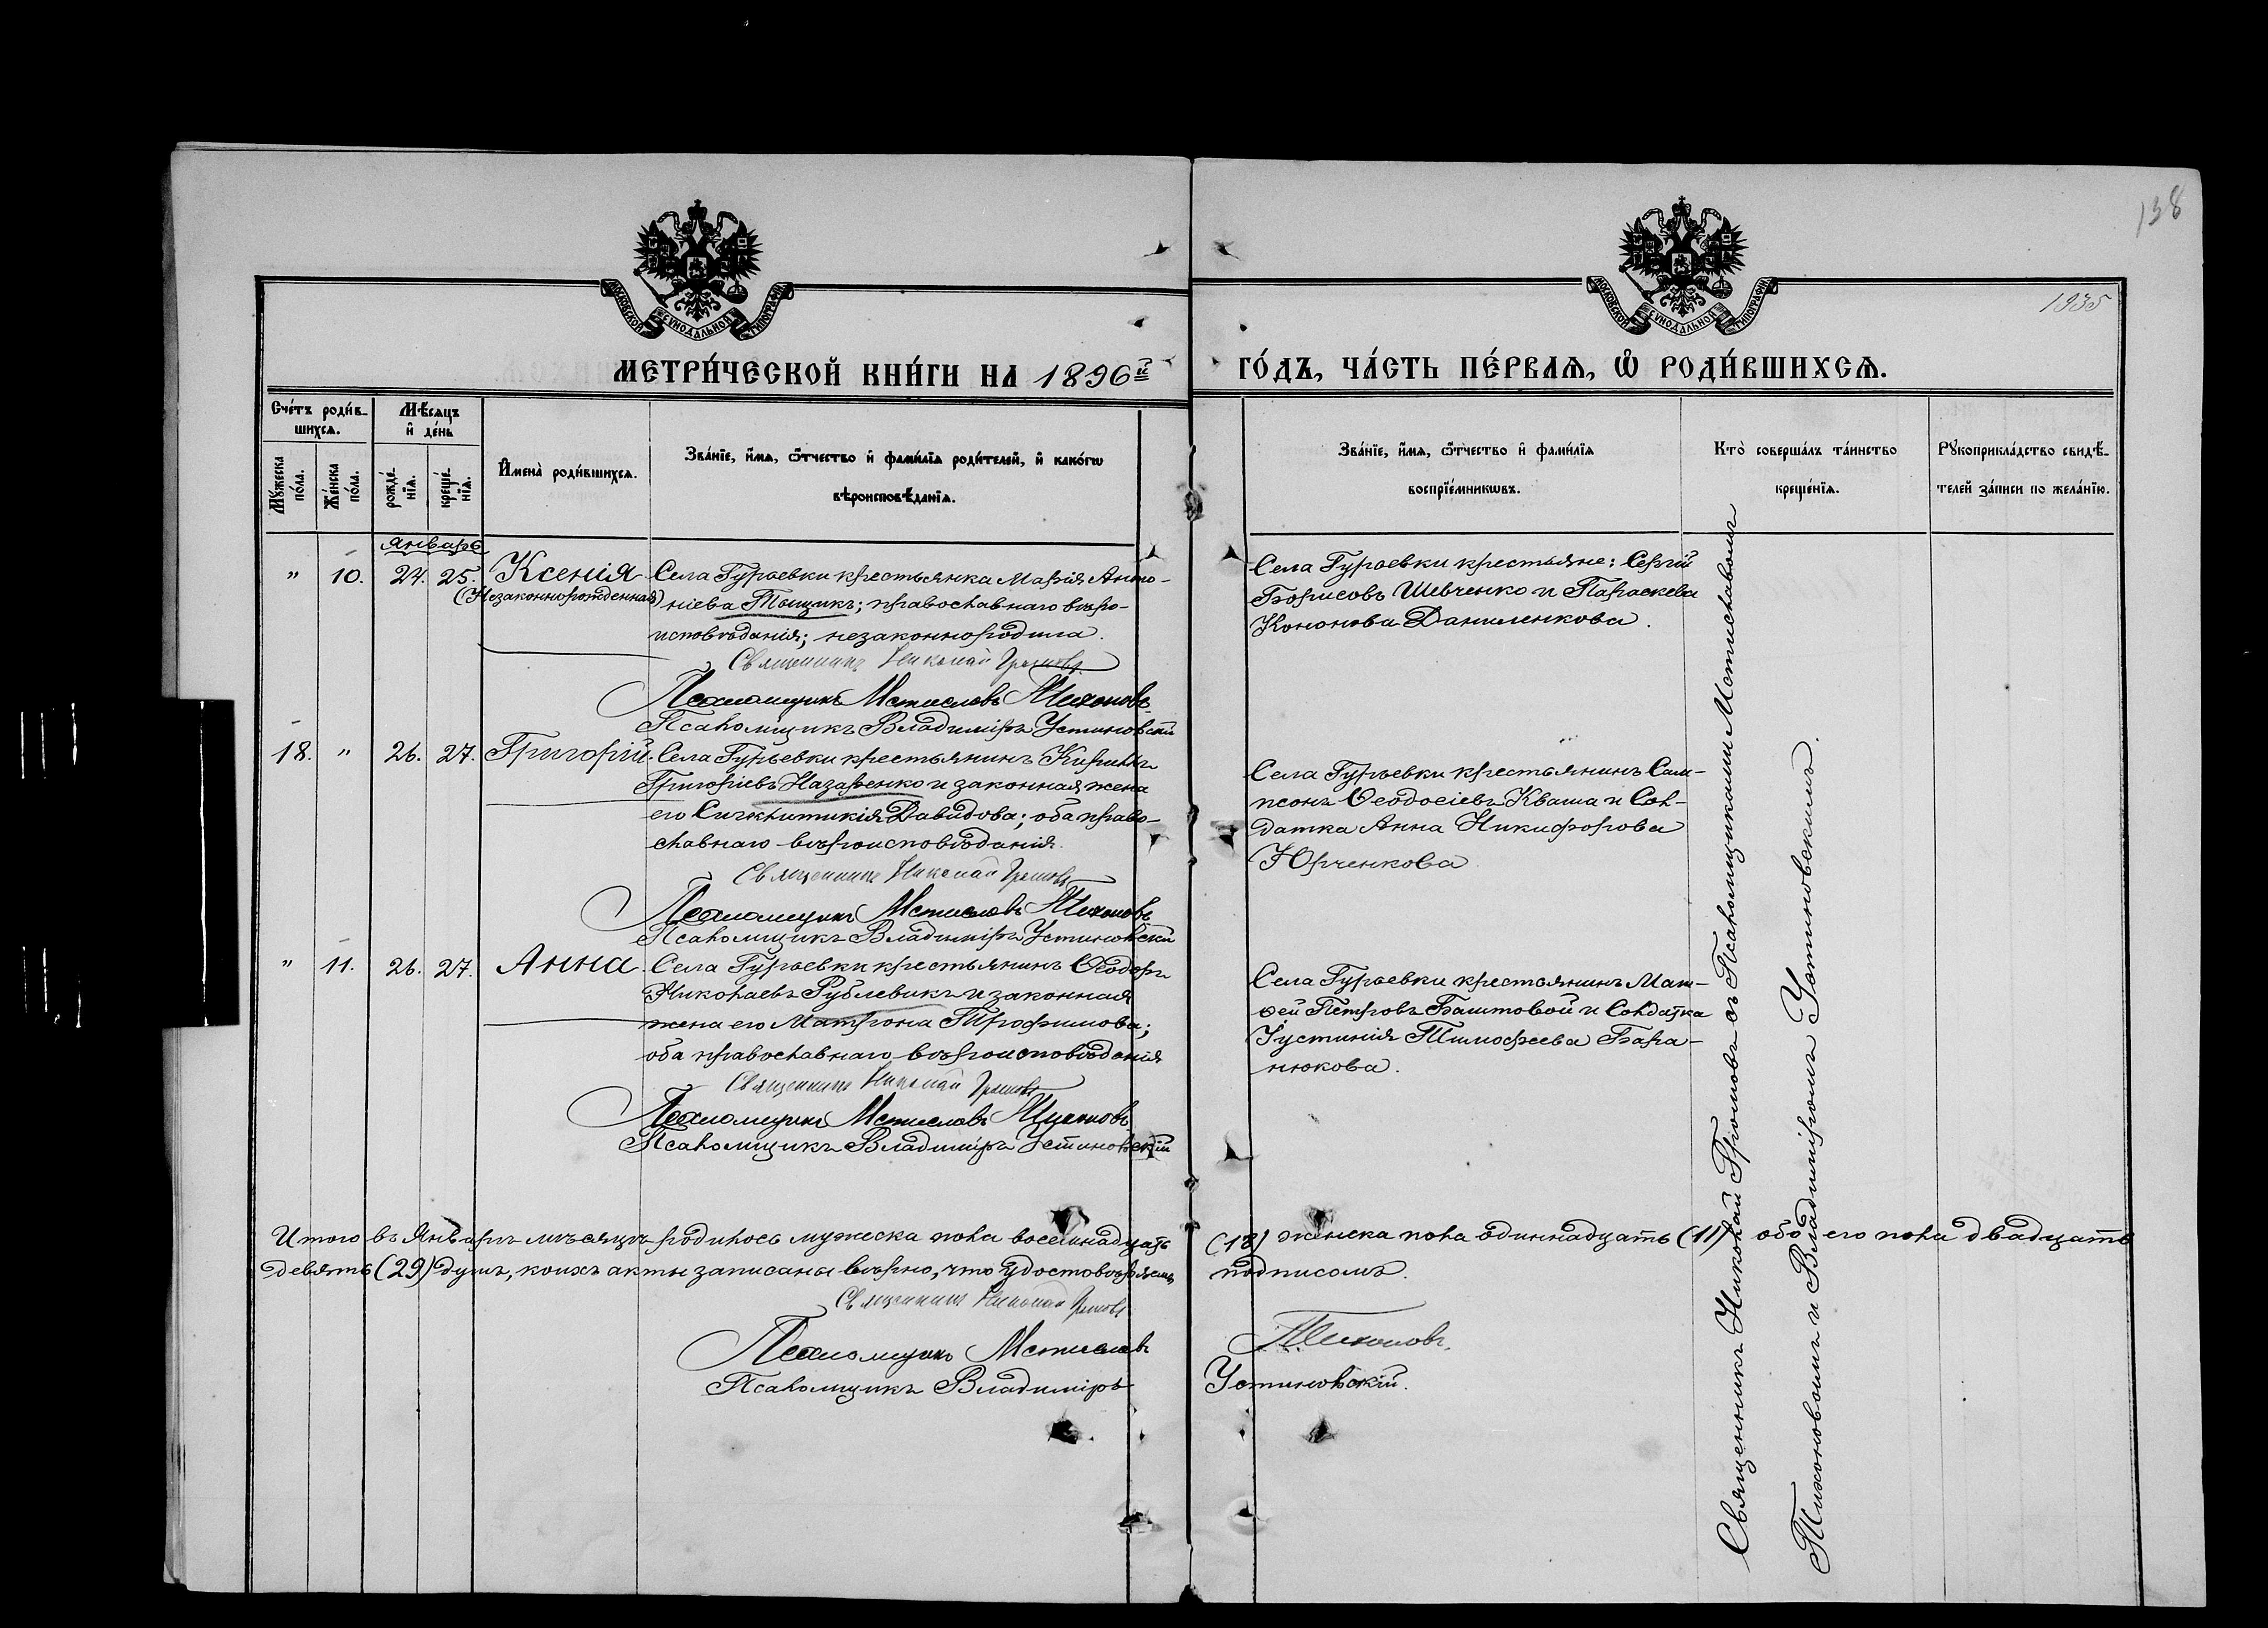 138
1935
МОСКОВСКОЙ СѴНОДАЛЬНОЙ ТИПОГРАФІИ
МОСКОВСКОЙ СѴНОДАЛЬНОЙ ТИПОГРАФІИ
МЕТРИ́ЧЕСКОЙ КНИ́ГИ НА 1896й ГО́ДЪ, ЧА́СТЬ ПЕ́РВАѦ, Ѡ РОДИ́ВШИХСѦ.
Сче́тъ роди́в-
шихсѧ.
Мꙋ́жеска
по́ла.
Же́нска
по́ла.
Мѣ́сѧцъ
и҆ де́нь
рожде́-
нїѧ.
креще́-
нїѧ.
И҆мена̀ роди́вшихсѧ.
Зва́нїе, и҆́мѧ, ѻ҆́тчество и҆ фами́лїѧ роди́телей, и҆ како́гѡ
вѣроисповѣ́данїѧ.
Зва́нїе, и҆́мѧ, ѻ҆́тчество и҆ фами́лїѧ
воспрїе́мникѡвъ.
Кто̀ соверша́лъ та́инство
креще́нїѧ.
Рꙋкоприкла́дство свидѣ́-
телей за́писи по жела́нїю.
Январь
" 10. 24. 25. Ксенія
(Незаконнорожденная)
Села Гурьевки крестьянка Марія Анто-
ніева Тыщикъ; православнаго вѣро-
исповѣданія; незаконнородила.
Священникъ Николай Громовъ
Псаломщикъ Мстиславъ Тихоновъ
Псаломщикъ Владиміръ Устиновскій
Села Гурьевки крестьяне: Сергій
Борисовъ Шевченко и Параскева
Кононова Даниленкова.
18. " 26. 27. Григорій.
Села Гурьевки крестьянинъ Кириллъ
Григоріевъ Назаренко и законная жена
его Сигклитикія Давидова; оба право-
славнаго вѣроисповѣданія.
Священникъ Николай Громовъ
Псаломщикъ Мстиславъ Тихоновъ
Псаломщикъ Владиміръ Устиновскій
Села Гурьевки крестьянинъ Сам-
псонъ Ѳеодосіевъ Кваша и Сол-
датка Анна Никифорова
Юрченкова
" 11. 26. 27. Анна
Села Гурьевки крестьянинъ Ѳеодоръ
Николаевъ Рублевикъ и законная
жена его Матрона Трофимова;
оба православнаго вѣроисповѣданія
Священникъ Николай Громовъ
Псаломщикъ Мстиславъ Тихоновъ
Псаломщикъ Владиміръ Устиновскій
Села Гурьевки крестьянинъ Мат-
ѳей Петровъ Баштовой и Солдатка
Іустинія Тимофеева Бара-
нюкова.
Священникъ Николай Громовъ съ Псаломщиками Мстиславомъ
Тихоновымъ и Владиміромъ Устиновскимъ.
Итого въ Январѣ мѣсяцѣ родилось мужеска пола восемнадцать (18) женска пола одиннадцать (11) обоего пола двадцать
девять (29) душъ, коихъ акты записаны вѣрно, что удостовѣряемъ подписомъ.
Священникъ Николай Громовъ
Псаломщикъ Мстиславъ Тихоновъ.
Псаломщикъ Владиміръ Устиновскій.